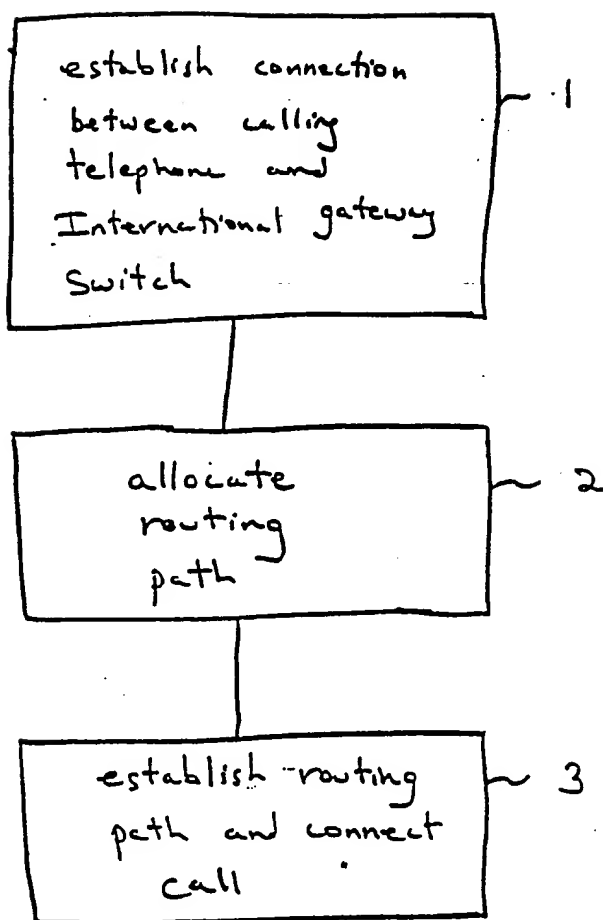 establish connection
between calling
telephone and
International gateway
Switch
1
allocate
routing
path
2
establish routing
path and connect
call
3